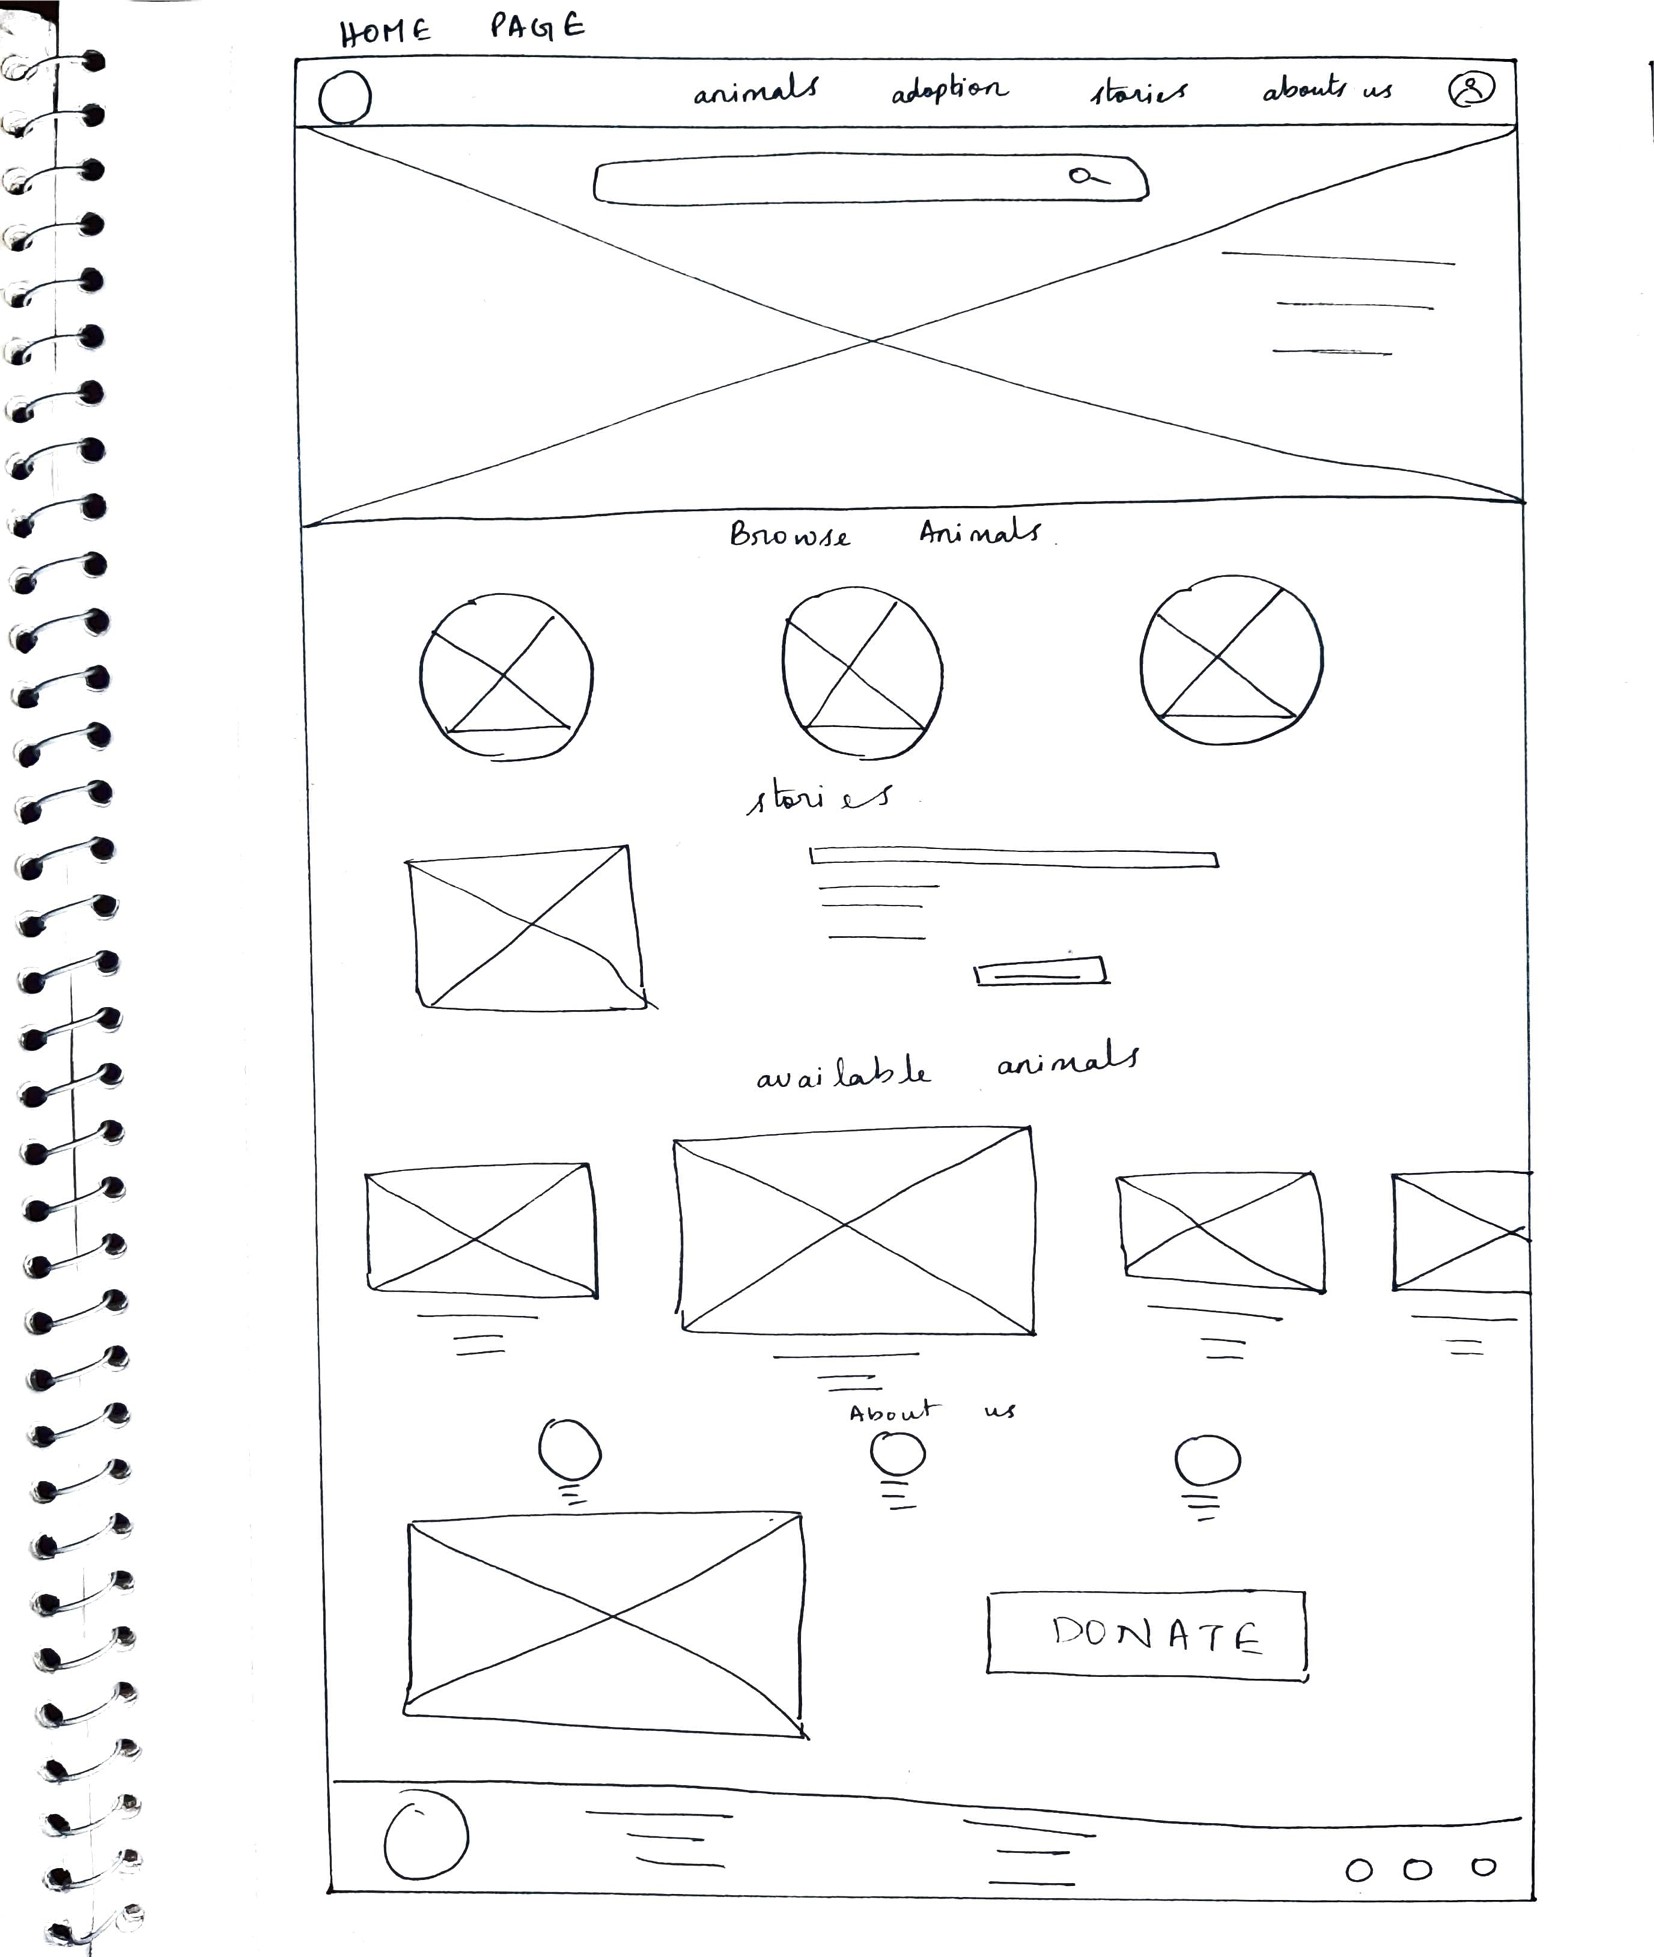 HOME PAGE
animals adoption stories abouts us
Browse Animals.
stories
available animals
About us
DONATE